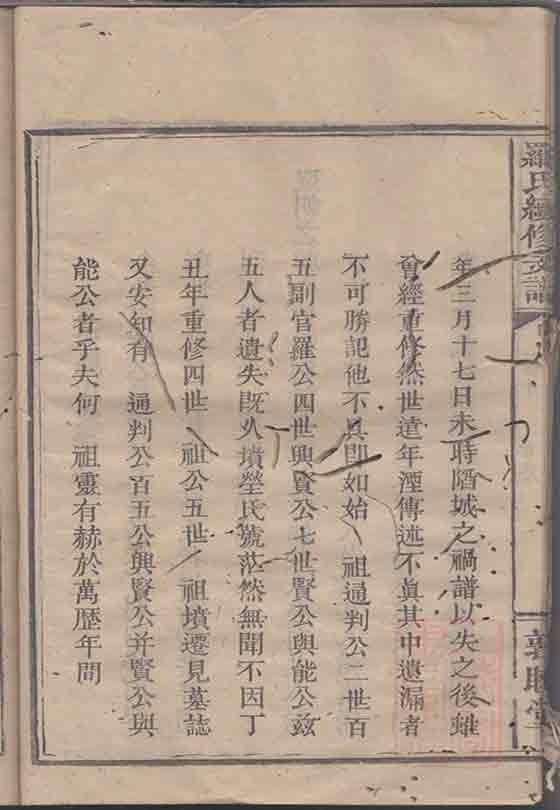 羅氏續修支譜
年三月十七日未時隳城之禍譜以失之後雖
曾經重修然世遠年湮傳述不眞其中遺漏者
不可勝記他不具即如始 祖通判公二世百
五副官羅公四世興賢公七世賢公與能公茲
五人者遺失既久墳塋氏號茫然無聞不因丁
丑年重修四世 祖公五世 祖墳遷見墓誌
又安知有 通判公百五公興賢公并賢公與
能公者乎夫何 祖靈有赫於萬歷年間